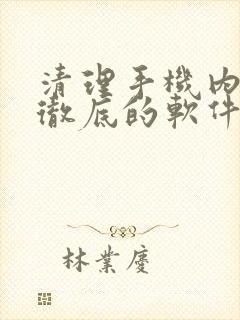 清理手機內
徹底的軟件
林業慶